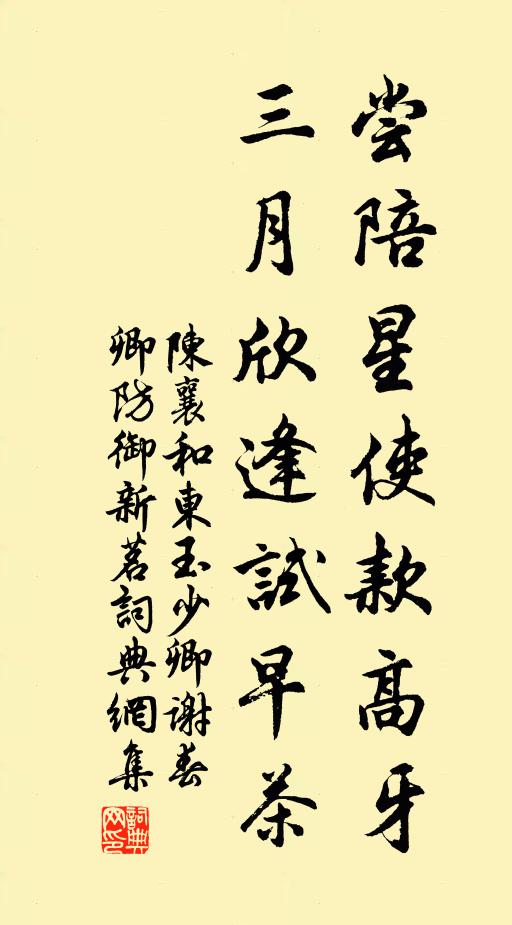 尝陪星使款高牙
三月欣逢試早茶
陳襄和東玉少卿謝春
卿防御新茗詞典網集
詞典网印